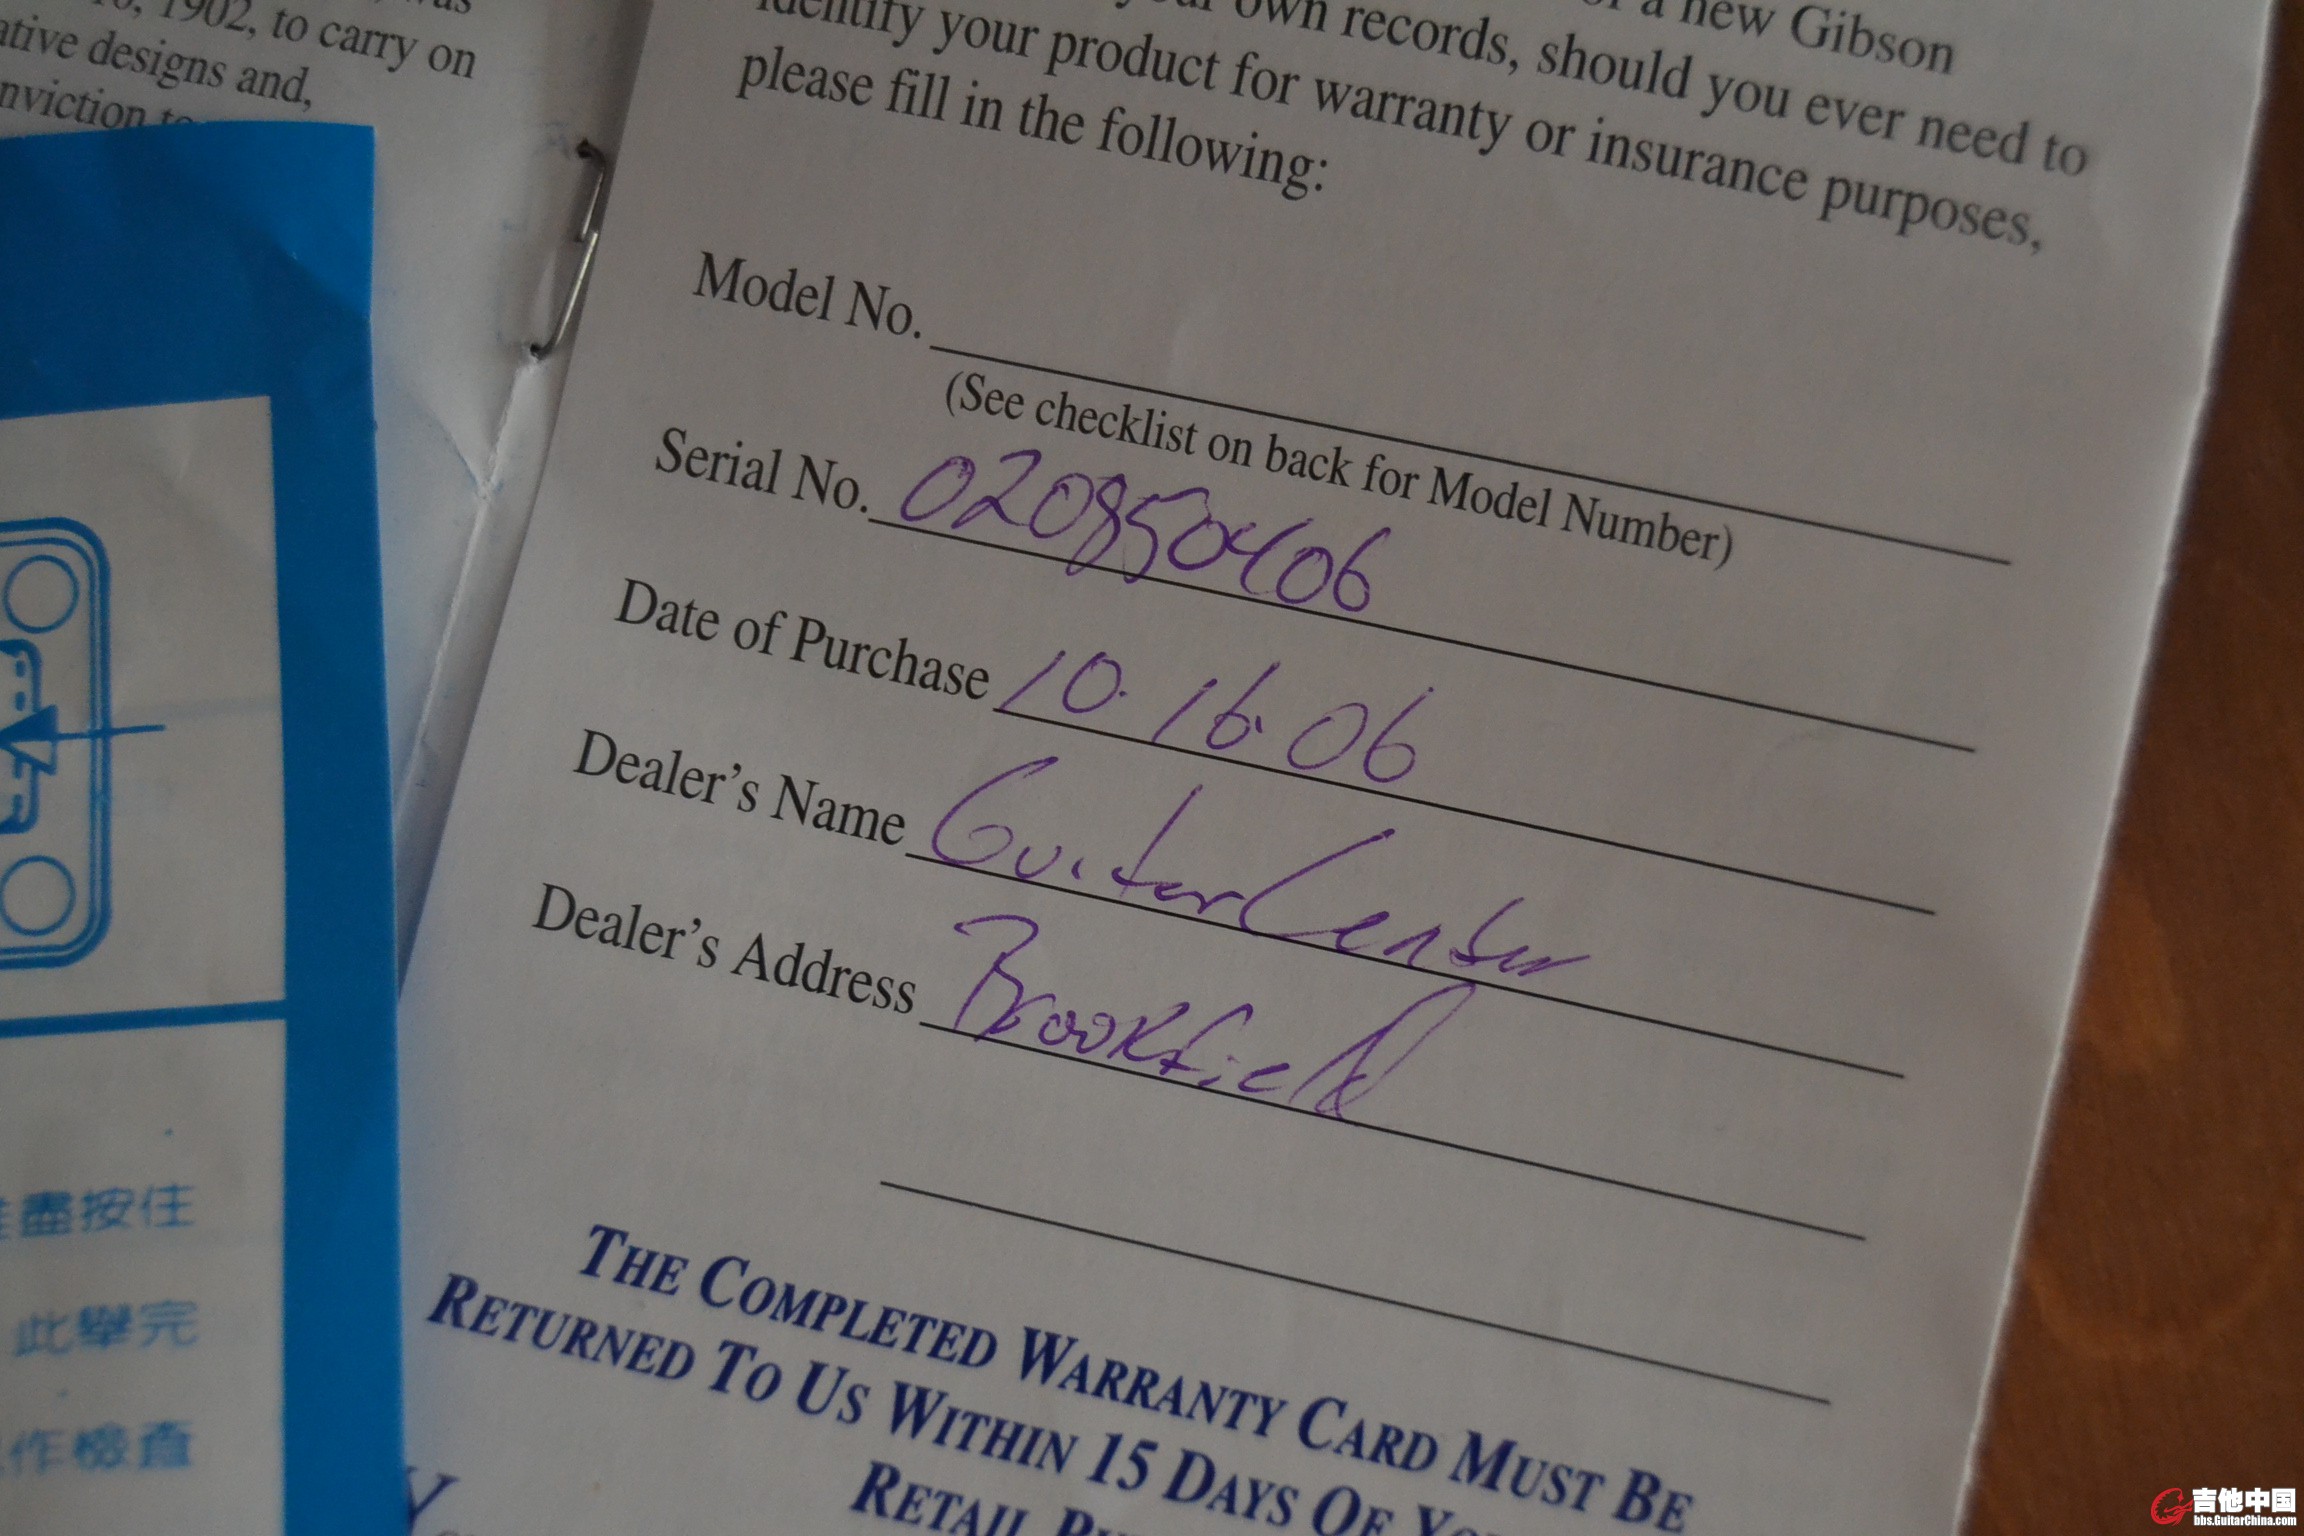 1902, to carry on
ative designs and,
nviction to
a new Gibson
your own records, should you ever need to
identify your product for warranty or insurance purposes,
please fill in the following:
Model No.
(See checklist on back for Model Number)
Serial No. 020850406
Date of Purchase 10.16.06
Dealer's Name Guitar Center
Dealer's Address Brookfield
THE COMPLETED WARRANTY CARD MUST BE
RETURNED TO US WITHIN 15 DAYS OF
RETAIL
盡按住
此舉完
作檢查
吉他中国
bbs.GuitarChina.com